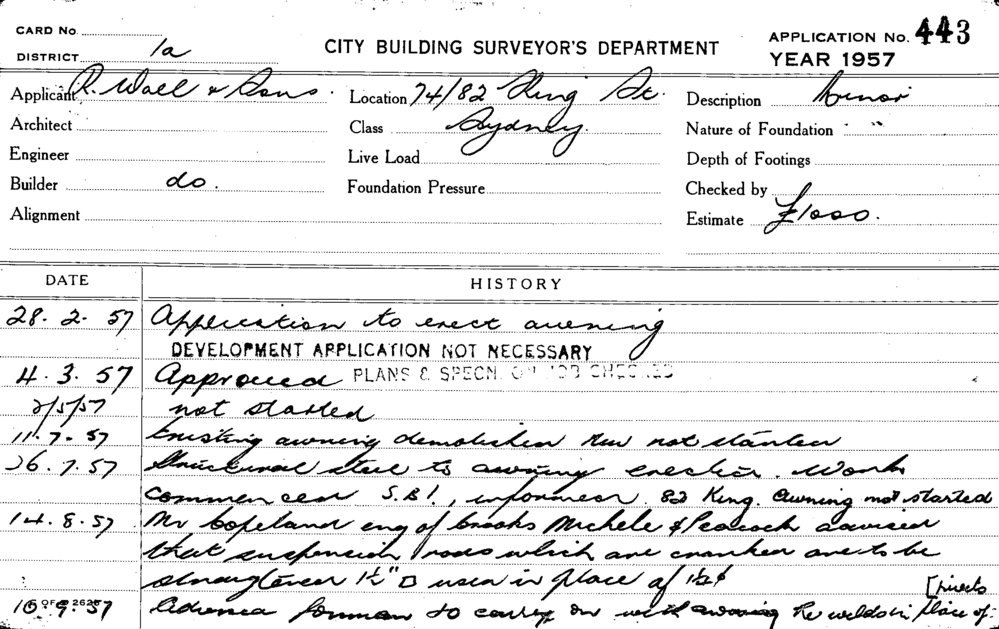 CARD No.
DISTRICT 1a
CITY BUILDING SURVEYOR'S DEPARTMENT
APPLICATION No. 443
YEAR 1957
Applicant R. Wall & Sons.
Location 74/82 King St.
Description Minor
Architect
Class Sydney.
Nature of Foundation
Engineer
Live Load
Depth of Footings
Builder do.
Foundation Pressure
Checked by
Alignment
Estimate £1000.
DATE HISTORY
28. 2. 57 Application to erect awning
DEVELOPMENT APPLICATION NOT NECESSARY
4. 3. 57 Approved PLANS & SPECN. ON JOB CHECKED
2/5/57 not started
11. 7. 57 Existing awning demolished new not started
26. 7. 57 Structural steel to awning erection. Work
commenced S.B.I., informed. 82 King. Awning not started
14. 8. 57 Mr Copeland eng of Crooks Michele & Peacock advised
that suspension rods which are cranked are to be
straightened 1½" □ used in place of
[rivets
10. 9. 57 Advised forman to carry on with awning the welds in place of